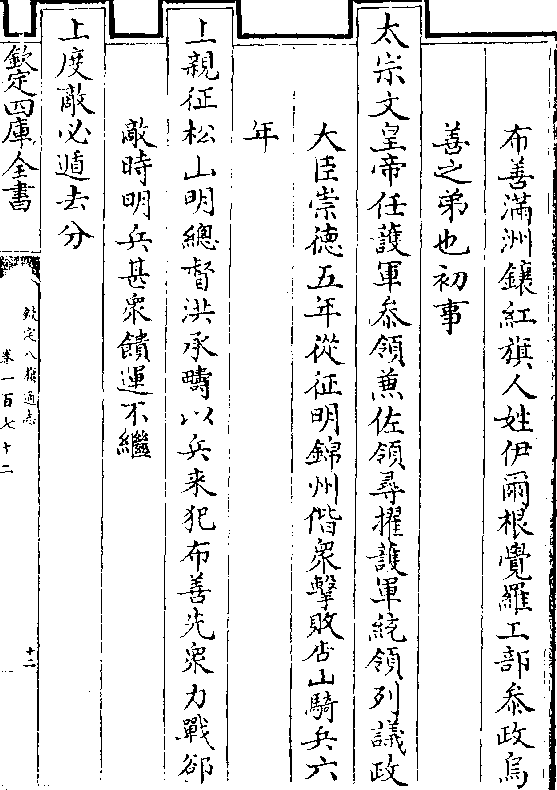 布善滿洲鑲紅旗人姓伊爾根覺羅工部叅政烏
善之弟也初事
太宗文皇帝任護軍叅領兼佐領尋擢護軍統領列議政
大臣崇德五年從征明錦州偕衆擊敗杏山騎兵六
年
上親征松山明總督洪承疇以兵来犯布善先衆力戰郤
敵時明兵甚衆饋運不繼
上度敵必遁去分
欽定四庫全書
欽定八旗通志
卷一百七十二
十二